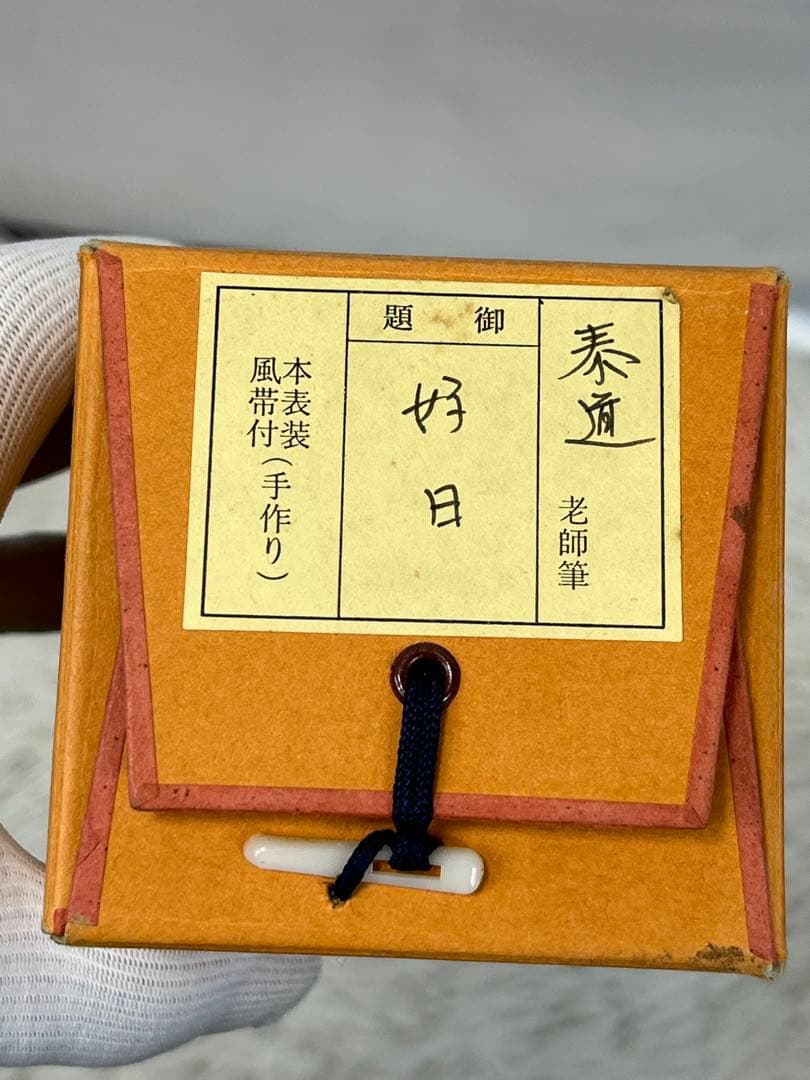 泰道 老師筆
御題
好日
本表装
風帯付(手作り)